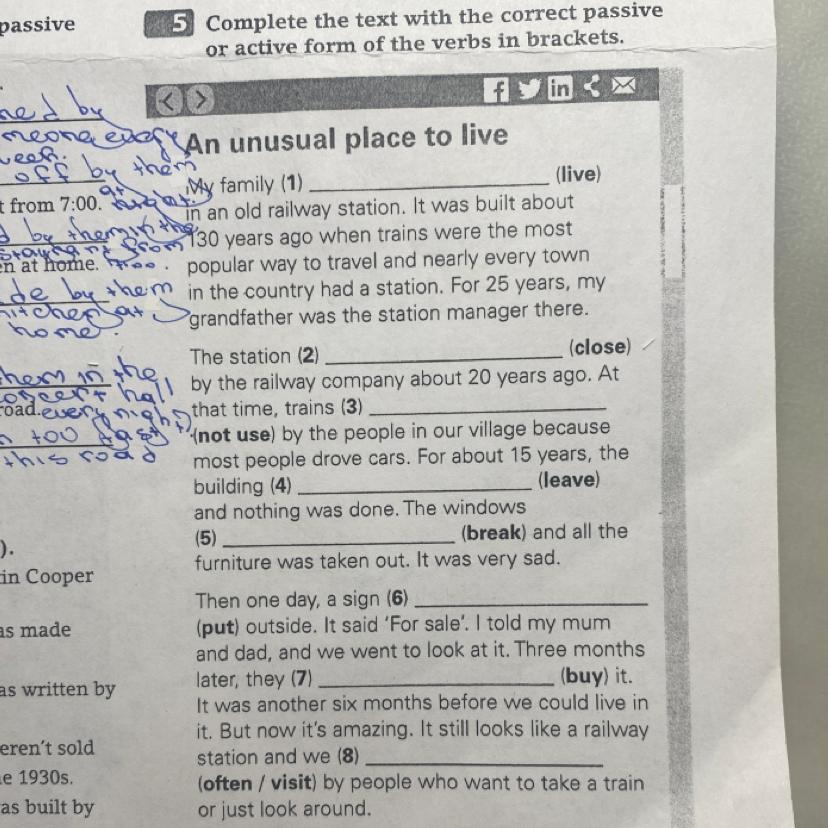 passive
5 Complete the text with the correct passive
or active form of the verbs in brackets.
ned by
meone every
week.
off by them
t from 7:00. at night.
d by them in the
n at home.
de by them
kitchen at
home.
them in the
concert hall
road. every night
n too fast
this road
).
in Cooper
as made
as written by
eren't sold
e 1930s.
as built by
f in
An unusual place to live
My family (1) ____ (live)
in an old railway station. It was built about
130 years ago when trains were the most
popular way to travel and nearly every town
in the country had a station. For 25 years, my
grandfather was the station manager there.
The station (2) ____ (close)
by the railway company about 20 years ago. At
that time, trains (3) ____
(not use) by the people in our village because
most people drove cars. For about 15 years, the
building (4) ____ (leave)
and nothing was done. The windows
(5) ____ (break) and all the
furniture was taken out. It was very sad.
Then one day, a sign (6) ____
(put) outside. It said 'For sale'. I told my mum
and dad, and we went to look at it. Three months
later, they (7) ____ (buy) it.
It was another six months before we could live in
it. But now it's amazing. It still looks like a railway
station and we (8) ____
(often / visit) by people who want to take a train
or just look around.